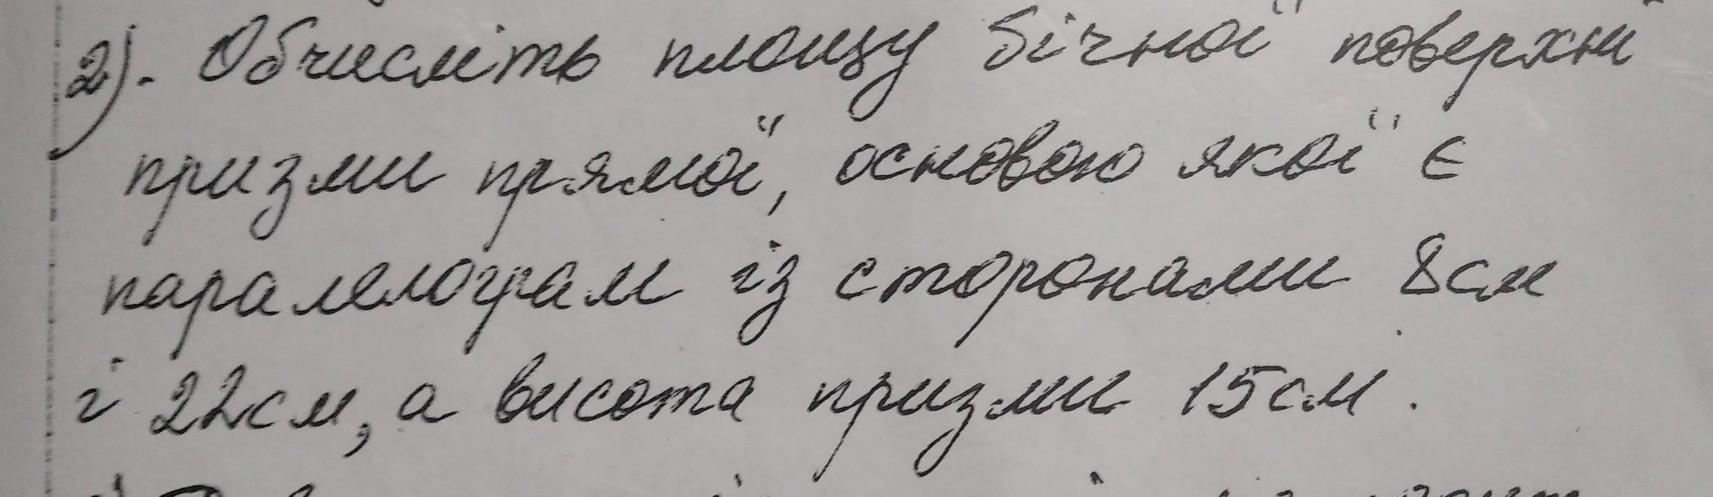 2). Обчисліть площу бічної поверхні
призми прямої, основою якої є
паралелограм із сторонами 8см
і 22см, а висота призми 15см.